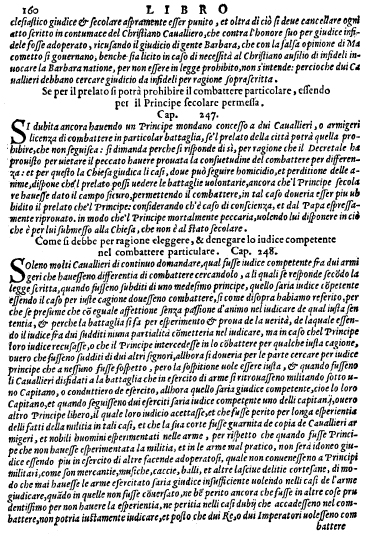 160 LIBRO
clesiastico giudice & secolare aspramente esser punito, et oltra di ciò si deue cancellare ogni
atto scritto in contumace del Christiano Caualliero, che contra l'honore suo per giudice infi-
dele fosse adoperato, ricusando il giudicio di gente Barbara, che con la falsa opinione di Ma
cometto si gouernano, benche sia licito in caso di necessità al Christiano ausilio di infideli in-
uocare la Barbara natione, per non essere in legge prohibito, non s'intende: percioche dui Ca
uallieri debbano cercare giudicio da infideli per ragione soprascritta.
Se per il prelato si potrà prohibire il combattere particolare, essendo
per il Principe secolare permessa.
Cap. 247.
SI dubita ancora hauendo un Principe mondano concesso a dui Cauallieri, o armigeri
licenza di combattere in particolar battaglia, se'l prelato della città potrà quella pro-
hibire, che non seguisca: si dimanda perche si risponde di sì, per ragione che il Decretale ha
prouisto per uietare il peccato hauere prouata la consuetudine del combattere per differen-
za: et per questo la Chiesa giudica li casi, doue può seguire homicidio, et perditione delle a-
nime, dispone che'l prelato possi uedere le battaglie uolontarie, ancora che'l Principe secola
re hauesse dato il campo sicuro, permettendo il combattere, in tal caso doueria esser piu ub
bidito il prelato che'l Principe: considerando ch'è caso di conscienza, et dal Papa espressa-
mente riprouato. in modo che'l Principe mortalmente peccaria, uolendo lui disponer in ciò
che è per lui submesso alla Chiesa, che non è al stato secolare.
Come si debbe per ragione eleggere, & denegare lo iudice competente
nel combattere particulare. Cap. 248.
SOleno molti Cauallieri di continuo domandare, qual fusse iudice competente fra dui armi
geri che hauesseno differentia di combattere cercandolo, a li quali se responde secōdo la
legge scritta, quando fusseno subditi di uno medesimo principe, quello saria iudice cōpetente
essendo il caso per iuste cagione douesseno combattere, si come disopra habiamo referito, per
che se presume che cō eguale affettione senza passione d'animo nel iudicare de qual iusta sen
tentia, & perche la battaglia si fa per esperimento & proua de la uerità, de laquale essen-
do il iudice fra dui subditi numa partialità cōmetteria nel iudicare, ma in caso che'l Principe
loro iudice recusasse, o che il Principe intercedesse in lo cōbattere per qualche iusta cagione,
ouero che fusseno subditi di dui altri signori, allhora si doueria per le parte cercare per iudice
principe che a nessuno fusse sospetto, pero la sospitione uole essere iusta, & quando fusseno
li Cauallieri disfidati a la battaglia che in esercito di arme si ritrouasseno militando sotto u-
no Capitano, o conduttiero de esercito, allhora quello saria iudice competente, cioe lo loro
Capitano, et quando seguisseno dui eserciti saria iudice competente uno delli capitani, ouero
altro Principe libero, il quale loro iudicio acettasse, et che fusse perito per longa esperientia
delli fatti della militia in tali casi, et che la sua corte fusse guarnita de copia de Cauallieri ar
migeri, et nobili huomini esperimentati nelle arme, per rispetto che quando fusse Princi-
pe che non hauesse esperimentata la militia, et in le arme mal pratico, non serà idoneo giu-
dice essendo piu in esercito di altre facende adoperatosi, quale non conuenesseno a' Principi
militari, come son mercantie, musiche, caccie, balli, et altre lasciue delitie cortesane, di mo-
do che mai hauesse le arme esercitato saria giudice insufficiente uolendo nelli casi de l'arme
giudicare, quādo in quelle non fusse cōuersato, ne bē perito ancora che fusse in altre cose pru
dentissimo per non hauere la esperientia, ne peritia nelli casi dubij che accadesseno nel com-
battere, non potria iustamente iudicare, et posto che dui Re, o dui Imperatori uolesseno com
battere